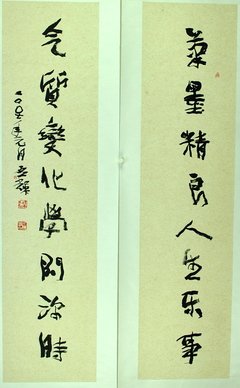 筆墨精良人生乐事
气質變化學問深時
二〇〇五年元月